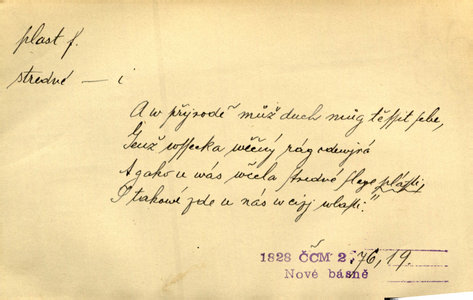 plast f.
stredné — i
A w přjrodě můž duch můg těssit sebe,
Genž wssecka wěčný rág odewjrá
A gako u wás wčela stredné slege plásti,
I takowé zde u nás w cizj wlasti."
1828 ČČM 2, 76, 19.
Nové básně